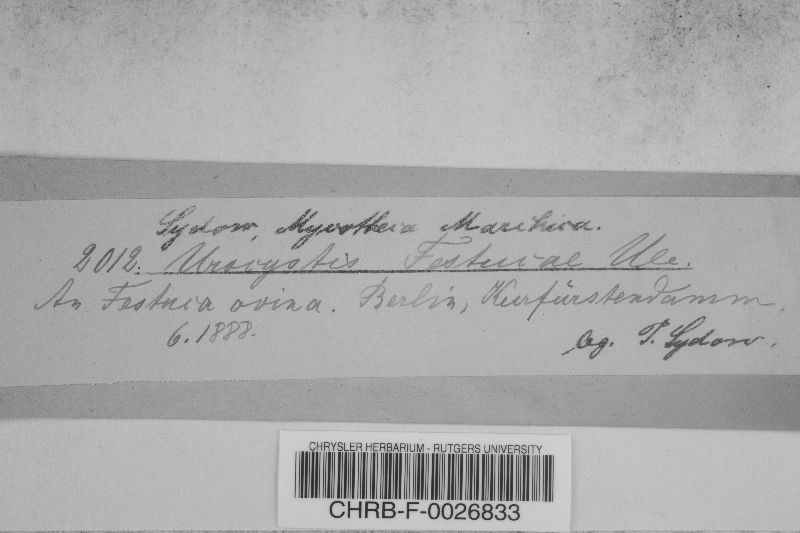 Sydow, Mycotheca Marchica.
2012. Urocystis Festucae Ule.
An Festuca ovina. Berlin, Kurfürstendamm.
6. 1888.
leg. P. Sydow.
CHRYSLER HERBARIUM - RUTGERS UNIVERSITY
CHRB-F-0026833